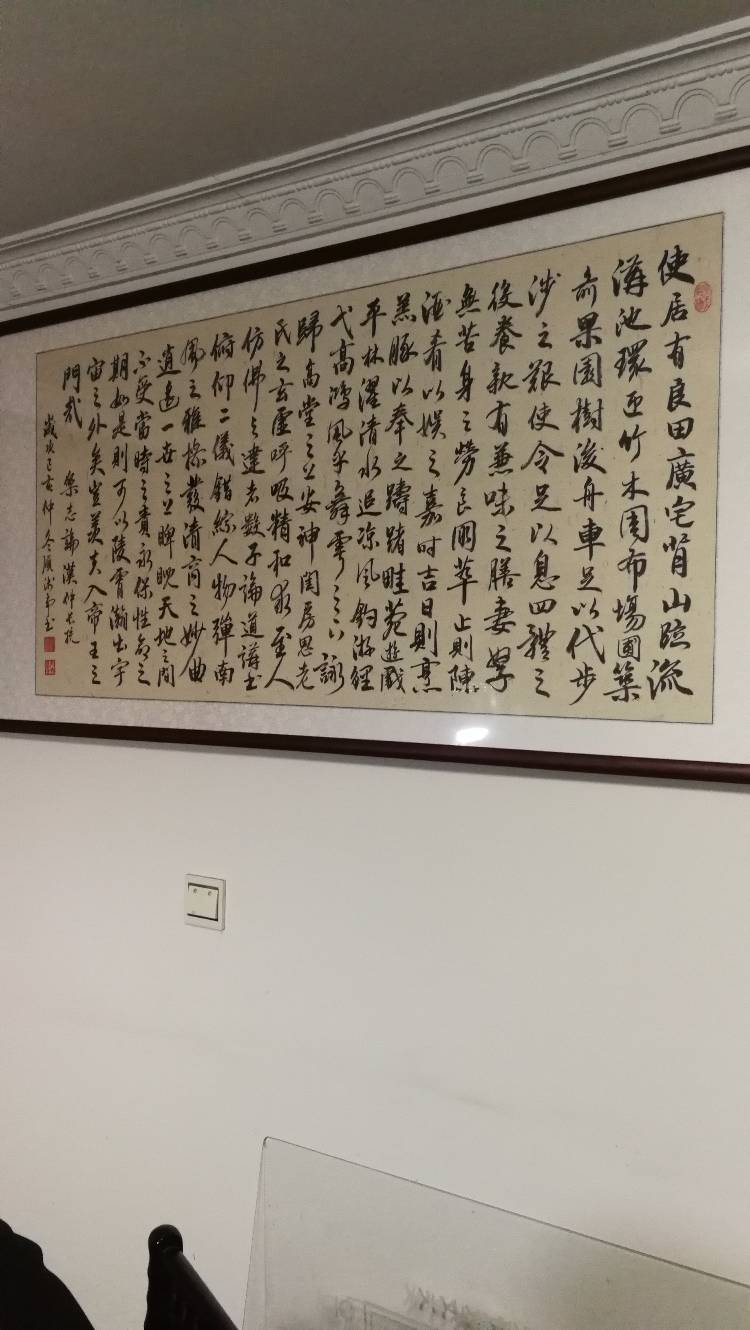 使居有良田廣宅背山臨流
溝池環匝竹木周布場圃築
前果園樹後舟車足以代步
涉之艱使令足以息四體之
役養親有兼味之膳妻孥
無苦身之勞良朋萃止則陳
酒肴以娛之嘉时吉日則烹
羔豚以奉之躊躇畦苑遊戲
平林濯清水追涼風釣游鯉
弋高鴻風乎舞雩之下詠
歸高堂之上安神閨房思老
氏之玄虛呼吸精和求至人
仿佛與達者數子論道講書
俯仰二儀錯綜人物彈南
風之雅操發清商之妙曲
逍遙一世之上睥睨天地之間
不受當時之責永保性命之
期如是則可以陵霄瀚出宇
宙之外矣豈羨夫入帝王之
門哉 樂志論漢仲長統
歲次己亥仲冬 書